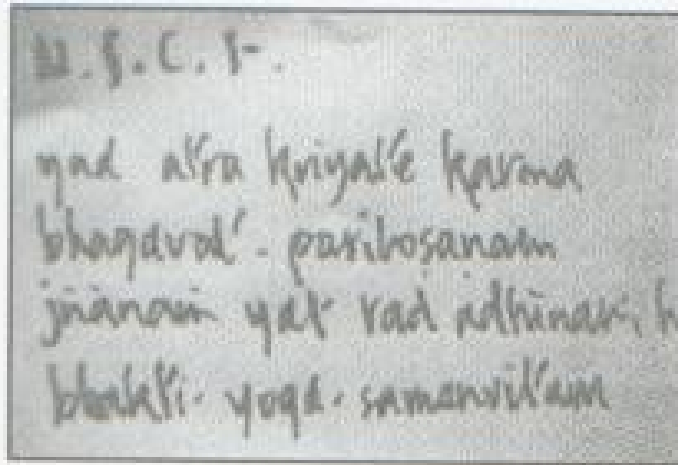 yad atra kriyate karma
bhagavat-paritosanam
jñānam yat tad adhinam h
bhakti-yoga-samanvitam